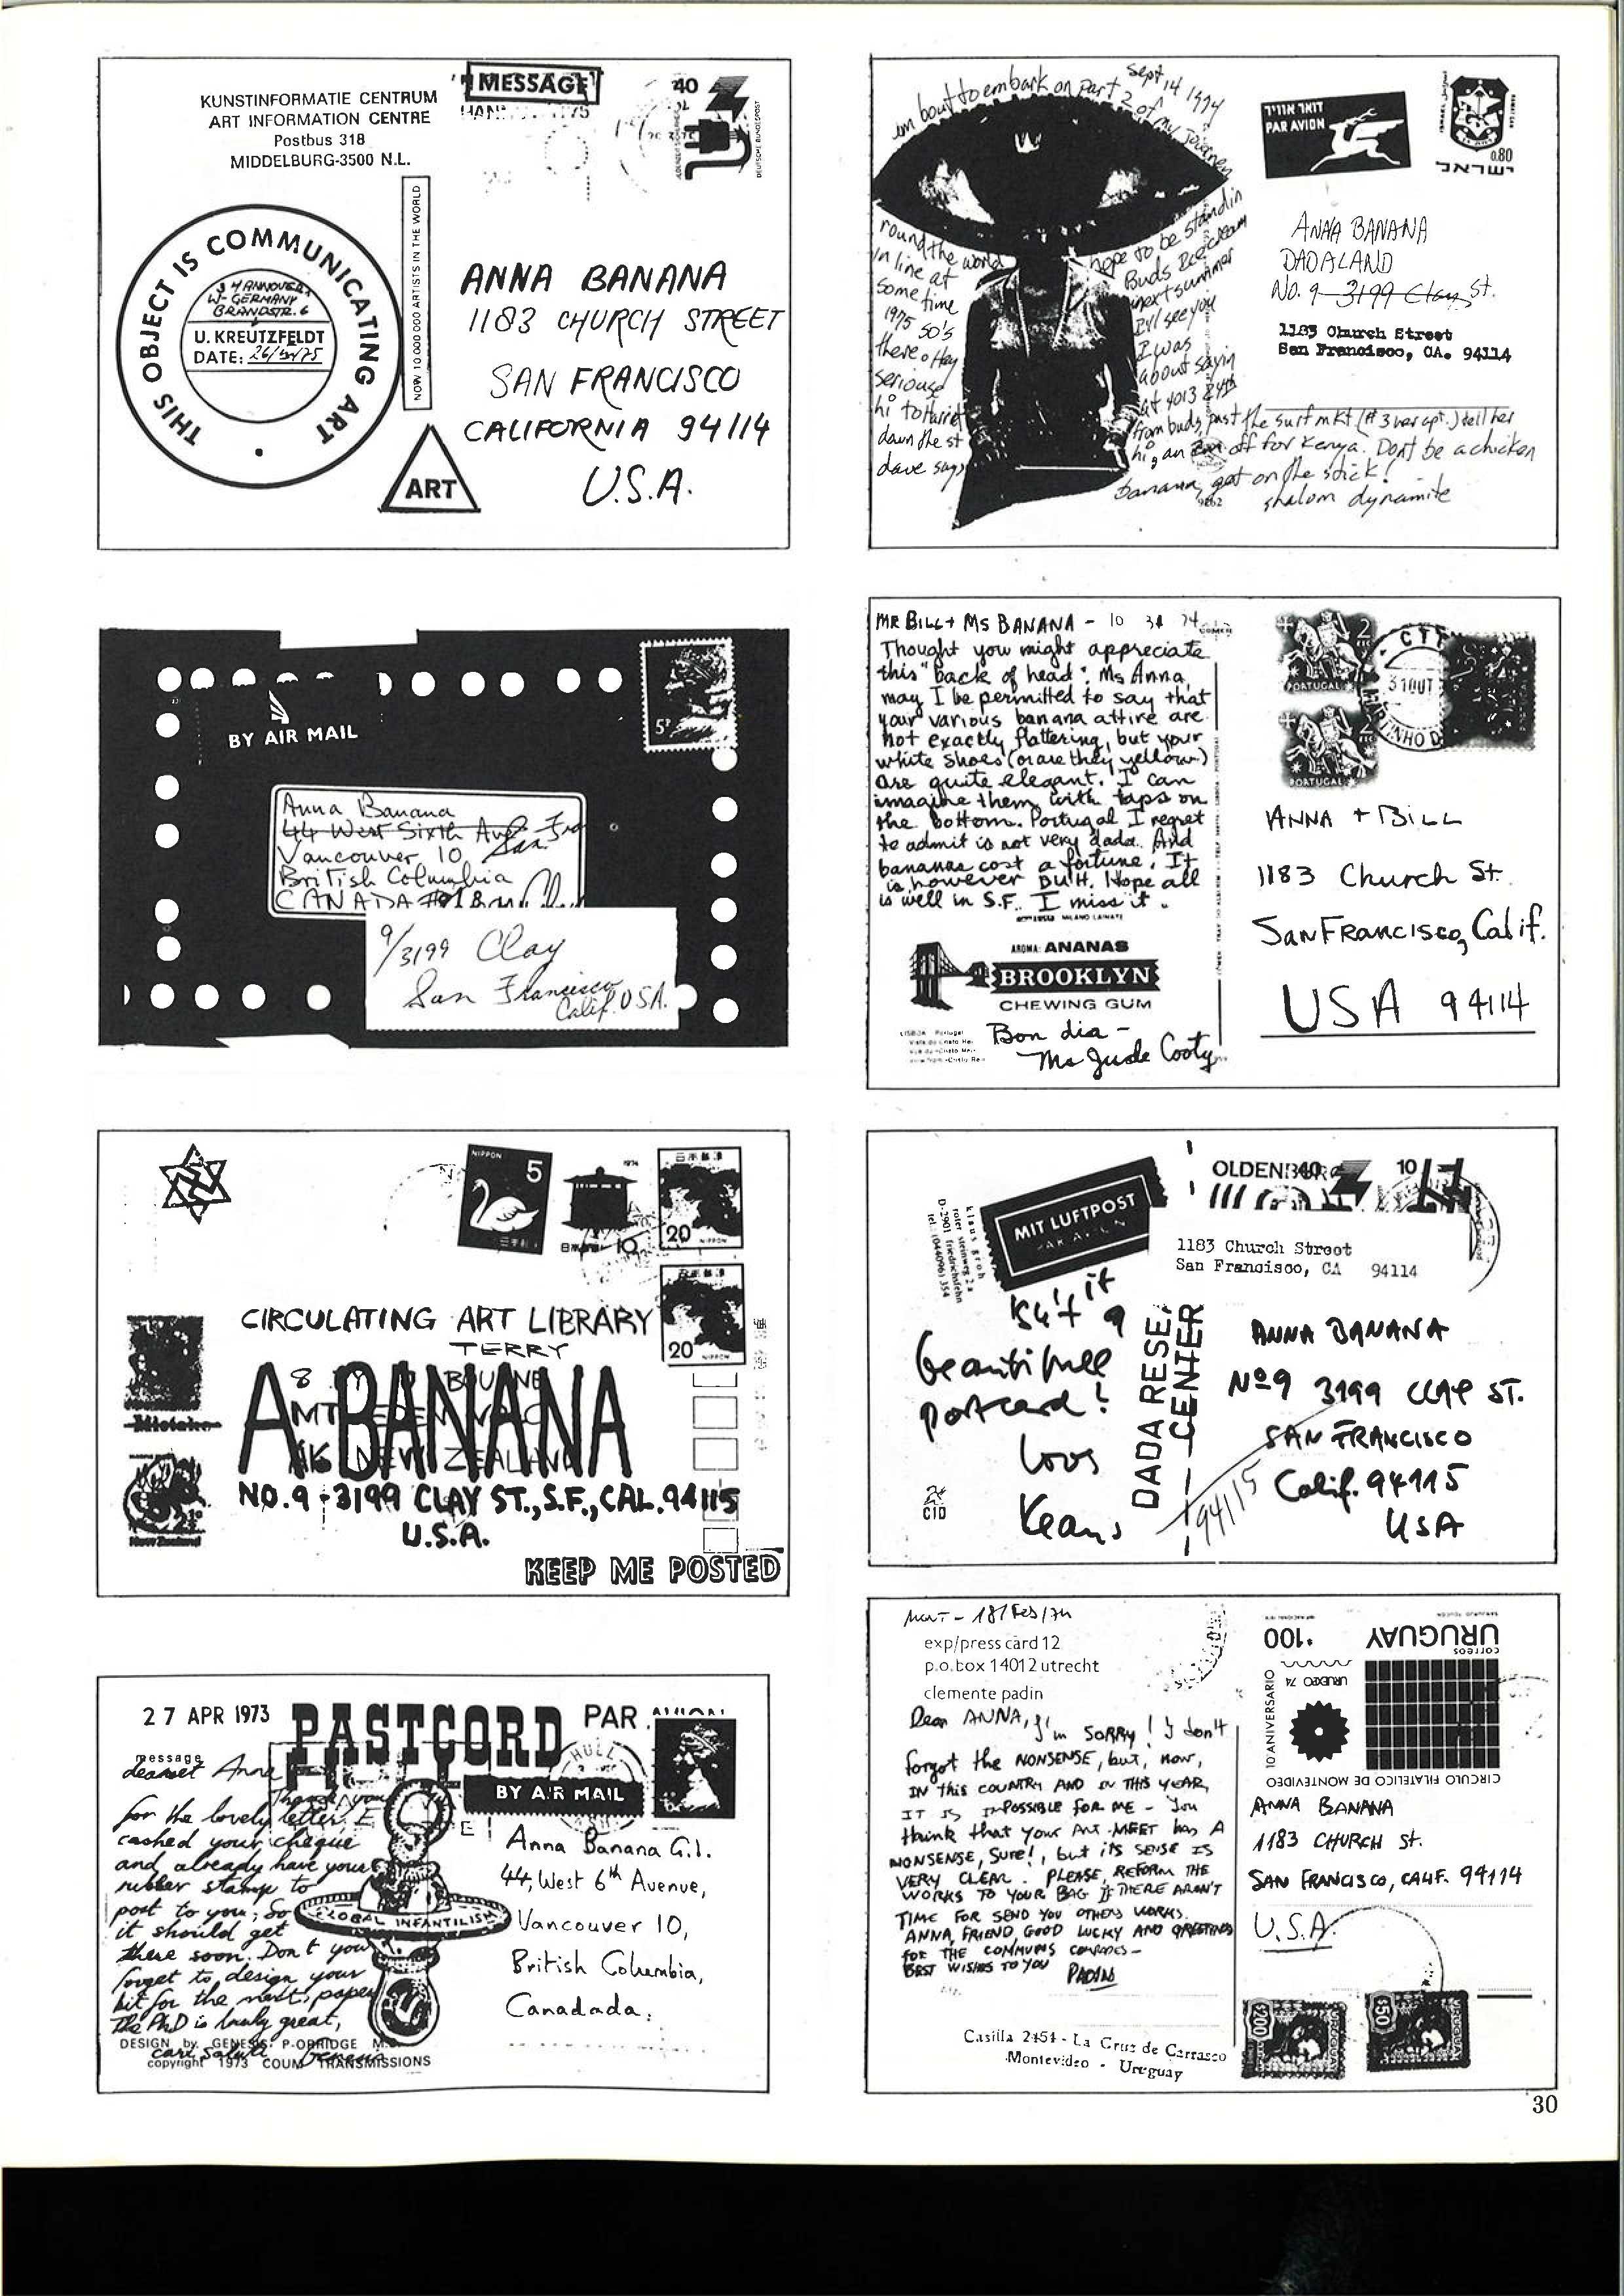 KUNSTINFORMATIE CENTRUM
ART INFORMATION CENTRE
Postbus 318
MIDDELBURG-3500 N.L.
MESSAGE
40
DEUTSCHE BUNDESPOST
NOW 10.000.000 ARTISTS IN THE WORLD
THIS OBJECT IS COMMUNICATING ART
3 HANNOVER 1
W-GERMANY
BRANDSTR. 6
U. KREUTZFELDT
DATE:
ART
ANNA BANANA
1183 CHURCH STREET
SAN FRANCISCO
CALIFORNIA 94114
U.S.A.
Sept 14 1974
im bout to embark on part 2 of my journey
round the world
in line at
some time
1975 so's
there. Hey
seriously
hi to Harriet
down the st
dave says
hope to be standin
Buds Ice cream
next summer
I'll see you
I was
about sayin
at 4013 24th
from buds, past the surf mkt (#3 her apt.) tell her
hi, an I'm off for Kenya. Don't be a chicken
banana, get on the stick!
shalom dynamite
דואר אוויר
PAR AVION
0.80
ישראל
ANNA BANANA
DADALAND
NO. 9 3199 Clay St.
1183 Church Street
San Francisco, CA. 94114
BY AIR MAIL
5P
Anna Banana
44 West Sixth Ave
Vancouver 10
British Columbia
CANADA
9/3199 Clay
San Francisco
Calif. USA.
MR BILL + MS BANANA - 10 31 74
Thought you might appreciate
this "back of head". Ms Anna,
may I be permitted to say that
your various banana attire are
not exactly flattering, but your
white shoes (or are they yellow)
are quite elegant. I can
imagine them with taps on
the bottom. Portugal I regret
to admit is not very dada. And
bananas cost a fortune. It
is however Buth. Hope all
is well in S.F. I miss it.
AROMA: ANANAS
BROOKLYN
CHEWING GUM
Bon dia -
Ms Jude Cooty
PORTUGAL
CTT
31OUT
PORTUGAL
ANNA + BILL
1183 Church St.
San Francisco, Calif.
USA 94114
NIPPON
5
10
20
NIPPON
20
NIPPON
CIRCULATING ART LIBRARY
TERRY
A BANANA
NEW ZEALAND
Mistake
New Zealand
NO. 9 - 3199 CLAY ST., S.F., CAL. 94115
U.S.A.
KEEP ME POSTED
MIT LUFTPOST
PAR AVION
klaus groh
roter steinweg 2a
D-2901 friedrichsfehn
1183 Church Street
San Francisco, CA 94114
beautifull
postcard!
Love
Klaus
CID
DADA RESE.
CENTER
ANNA BANANA
No 9 3199 CLAY ST.
SAN FRANCISCO
Calif. 94115
USA
94115
27 APR 1973
PASTCORD
PAR AVION
HULL
BY AIR MAIL
message
dearest Anna
Thank you
for the lovely letter, I
cashed your cheque
and already have your
rubber stamp to
post to you, so
it should get
there soon. Don't you
forget to design your
bit for the next paper
The PhD is truly great,
GLOBAL INFANTILISM
DESIGN by GENESIS P-ORRIDGE
copyright 1973 COUM TRANSMISSIONS
Anna Banana G.I.
44, West 6th Avenue,
Vancouver 10,
British Columbia,
Canadada.
18/Feb/74
exp/press card 12
p.o.box 14012 utrecht
clemente padin
Dear ANNA, I'm SORRY! I don't
forgot the NONSENSE, but, now,
IN this COUNTRY AND IN THIS YEAR,
IT IS IMPOSSIBLE FOR ME - You
think that your Art-MEET has A
NONSENSE, Sure!, but its SENSE IS
VERY CLEAR. PLEASE, REFORM THE
WORKS TO YOUR BAG IF THERE AREN'T
TIME FOR SEND YOU OTHERS WORKS.
ANNA, FRIEND, GOOD LUCKY AND GREETINGS
FOR THE COMMUNS
BEST WISHES TO YOU
PADIN
Casilla 2454 - La Cruz de Carrasco
Montevideo - Uruguay
correos
URUGUAY
100
URUEXPO 74
10 ANIVERSARIO
CIRCULO FILATELICO DE MONTEVIDEO
ANNA BANANA
1183 CHURCH St.
SAN FRANCISCO, CALIF. 94114
U.S.A.
$200
URUGUAY
$50
URUGUAY
30